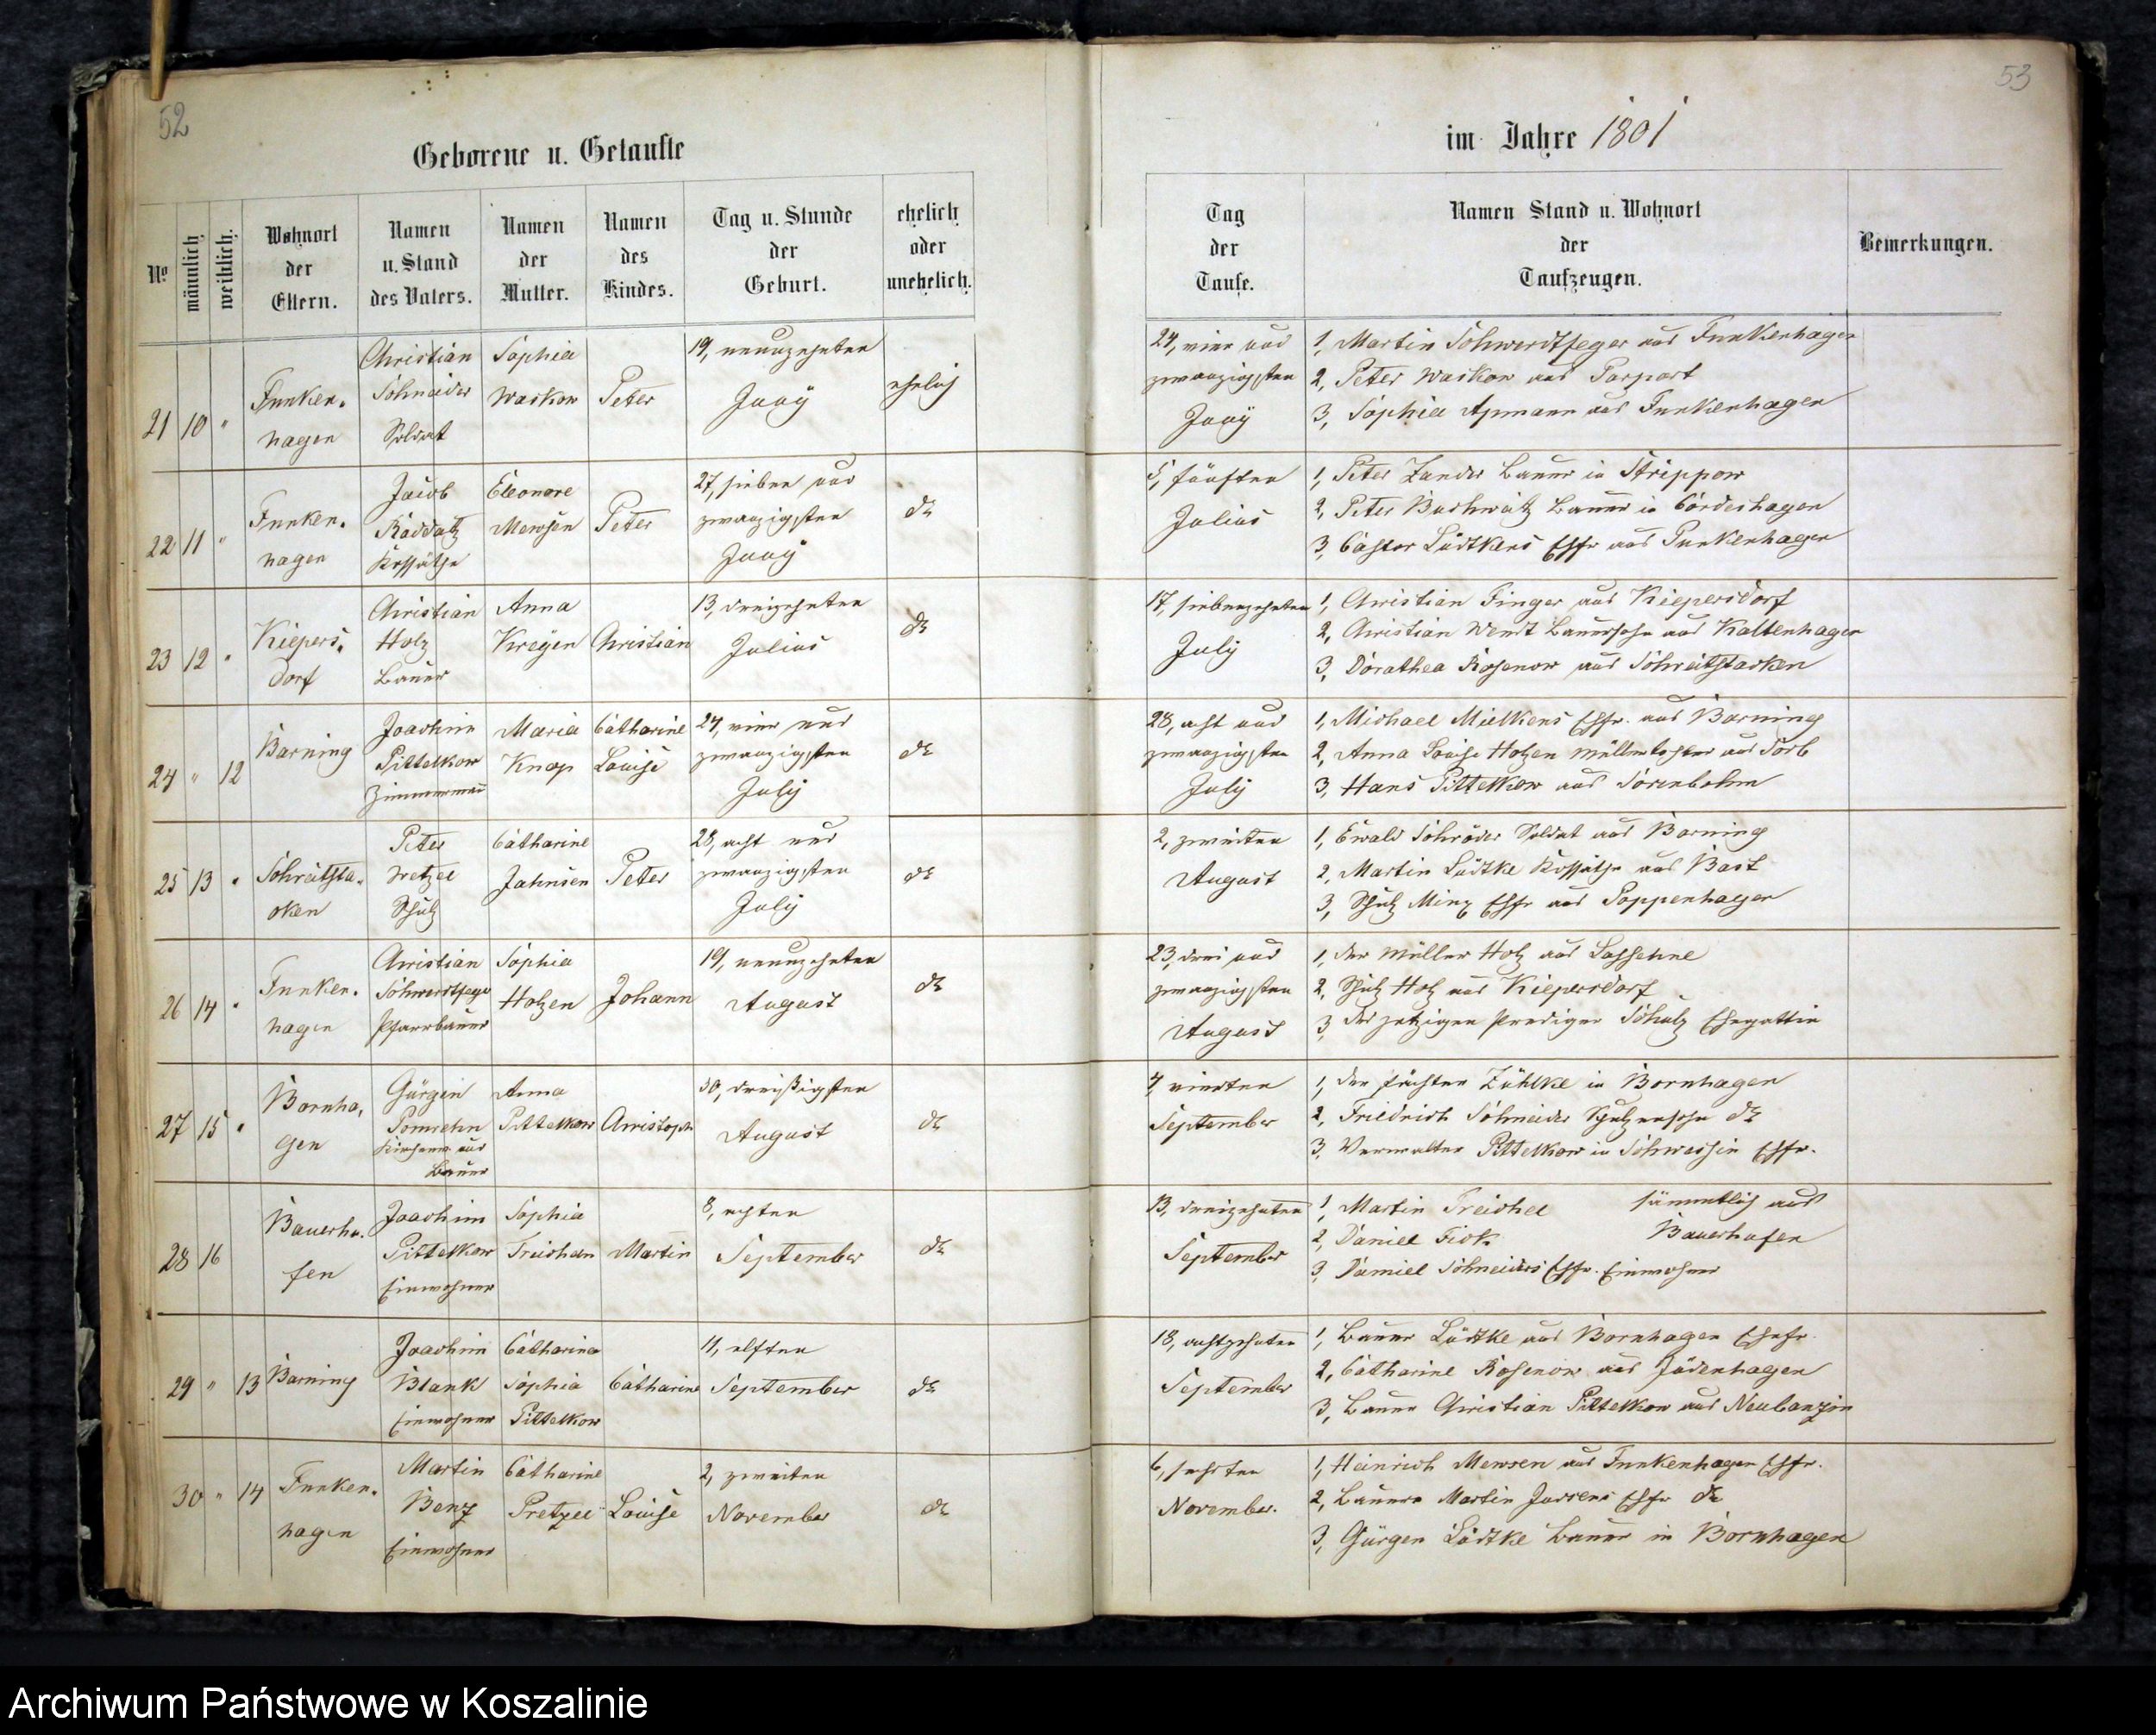 52
Geborene u. Getaufte
No
männlich
weiblich.
Wohnort
der
Eltern.
Namen
u. Stand
des Vaters.
Namen
der
Mutter.
Namen
des
Kindes.
Tag u. Stunde
der
Geburt.
ehelich
oder
unehelich.
21 10 "
Funken-
hagen
Christian
Schneider
Soldat
Sophia
Waskow
Peter
19, neunzehnten
Juny
ehelich
22 11 "
Funken-
hagen
Jacob
Raddatz
Kossäthe
Eleonore
Mewsen
Peter
27, sieben und
zwanzigsten
Juny
do
23 12 "
Kiepers-
dorf
Christian
Holz
Bauer
Anna
Kreyen
Christian
13, dreizehnten
Julius
do
24 " 12
Barning
Joachim
Pittelkow
Zimmermañ
Maria
Knop
Catharine
Louise
24, vier und
zwanzigsten
July
do
25 13 "
Schreitsta-
cken
Peter
Wetzel
Schulz
Catharine
Jahnsen
Peter
28, acht und
zwanzigsten
July
do
26 14 "
Funken-
hagen
Christian
Schwerdtfeger
Pfarrbauer
Sophia
Holzen
Johann
19, neunzehnten
August
do
27 15 "
Bornha-
gen
Gürgen
Pomrehn
und
Bauer
Anna
Pittelkow
Christoph
30, dreißigsten
August
do
28 16
Bauerhu-
fen
Joachim
Pittelkow
Einwohner
Sophia
Treichen
Martin
8, achten
September
do
29 " 13
Barning
Joachim
Blank
Einwohner
Catharina
Sophia
Pittelkow
Catharine
11, elften
September
do
30 " 14
Funken-
hagen
Martin
Benz
Einwohner
Catharine
Pretzel
Louise
2, zweiten
November
do
53
im Jahre 1801
Tag
der
Taufe.
Namen Stand u. Wohnort
der
Taufzeugen.
Bemerkungen.
24, vier und
zwanzigsten
Juny
1, Martin Schwerdtfeger aus Funkenhagen
2, Peter Waskow aus Parpart
3, Sophia Apmann aus Funkenhagen
5, fünften
Julius
1, Peter Zander Bauer in Strippow
2, Peter Buchwatz Bauer in Cördeshagen
3, Castor Lüdtkens Ehfr aus Funkenhagen
17, siebenzehnten
July
1, Christian Finger aus Kiepersdorf
2, Christian Wendt Bauersohn aus Kaltenhagen
3, Dorathea Rosenow aus Schreitstacken
28, acht und
zwanzigsten
July
1, Michael Mielkens Ehfr. aus Barning
2, Anna Louise Holzen Müllertochter aus Sorb
3, Hans Pittelkow aus Sorenbohm
2, zweiten
August
1, Ewald Schröder Soldat aus Barning
2, Martin Lüdtke Kossäthe aus Bast
3, Schulz Minx Ehfr aus Poppenhagen
23, drei und
zwanzigsten
August
1, der Müller Holz aus Lassehne
2, Schulz Holz aus Kiepersdorf
3, des jetzigen Prediger Schulz Ehegattin
4, vierten
September
1, der Zühlke in Bornhagen
2, Friedrich Schneider Schulzensohn do
3, Verwalter Pittelkow in Schwessin Ehfr.
13, dreizehnten
September
1, Martin Treichel sämmtlich aus
2, Daniel Fick Bauerhufen
3, Damiel Schneiders Ehfr. Einwohner
18, achtzehnten
September
1, Bauer Lüdtke aus Bornhagen Ehefr.
2, Catharine Rosenow aus Jüdenhagen
3, Bauer Christian Pittelkow aus Neubanzin
6, sechsten
November.
1, Heinrich Mewsen aus Funkenhagen Ehfr.
2, Bauern Martin Ehfr do
3, Gürgen Lüdtke Bauer in Bornhagen
Archiwum Państwowe w Koszalinie